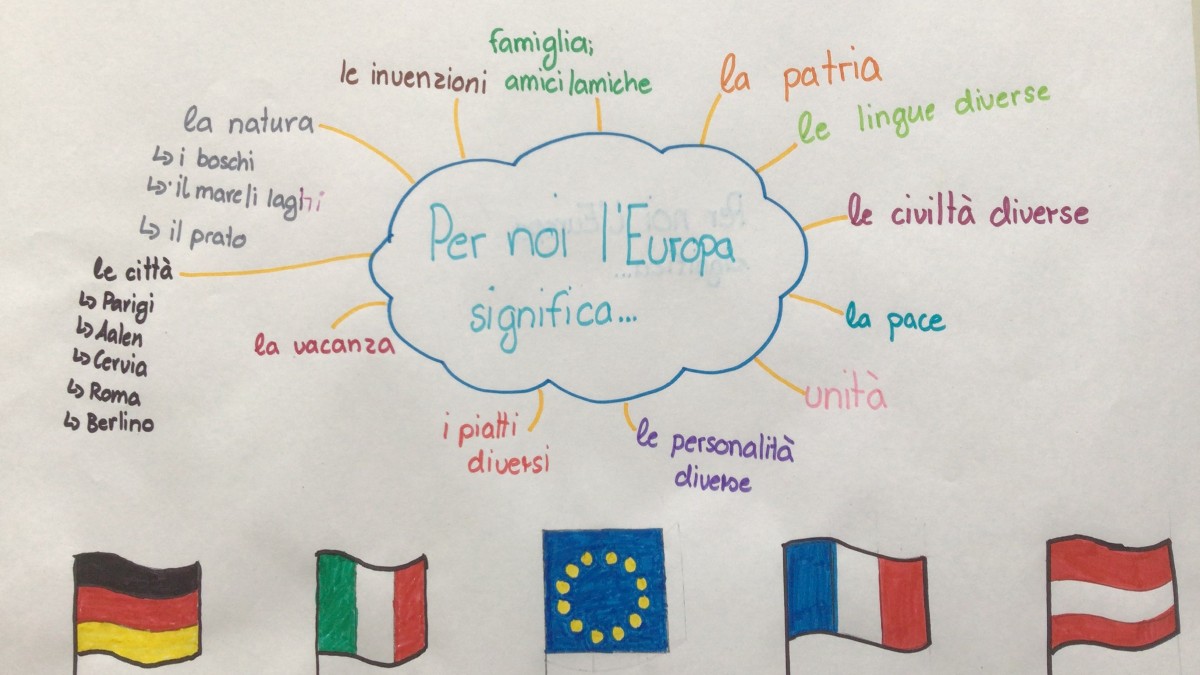 famiglia;
amici/amiche
le invenzioni
la patria
le lingue diverse
la natura
↳ i boschi
↳ il mare/i laghi
↳ il prato
le civiltà diverse
Per noi l'Europa
significa...
le città
↳ Parigi
↳ Aalen
↳ Cervia
↳ Roma
↳ Berlino
la vacanza
la pace
unità
i piatti
diversi
le personalità
diverse